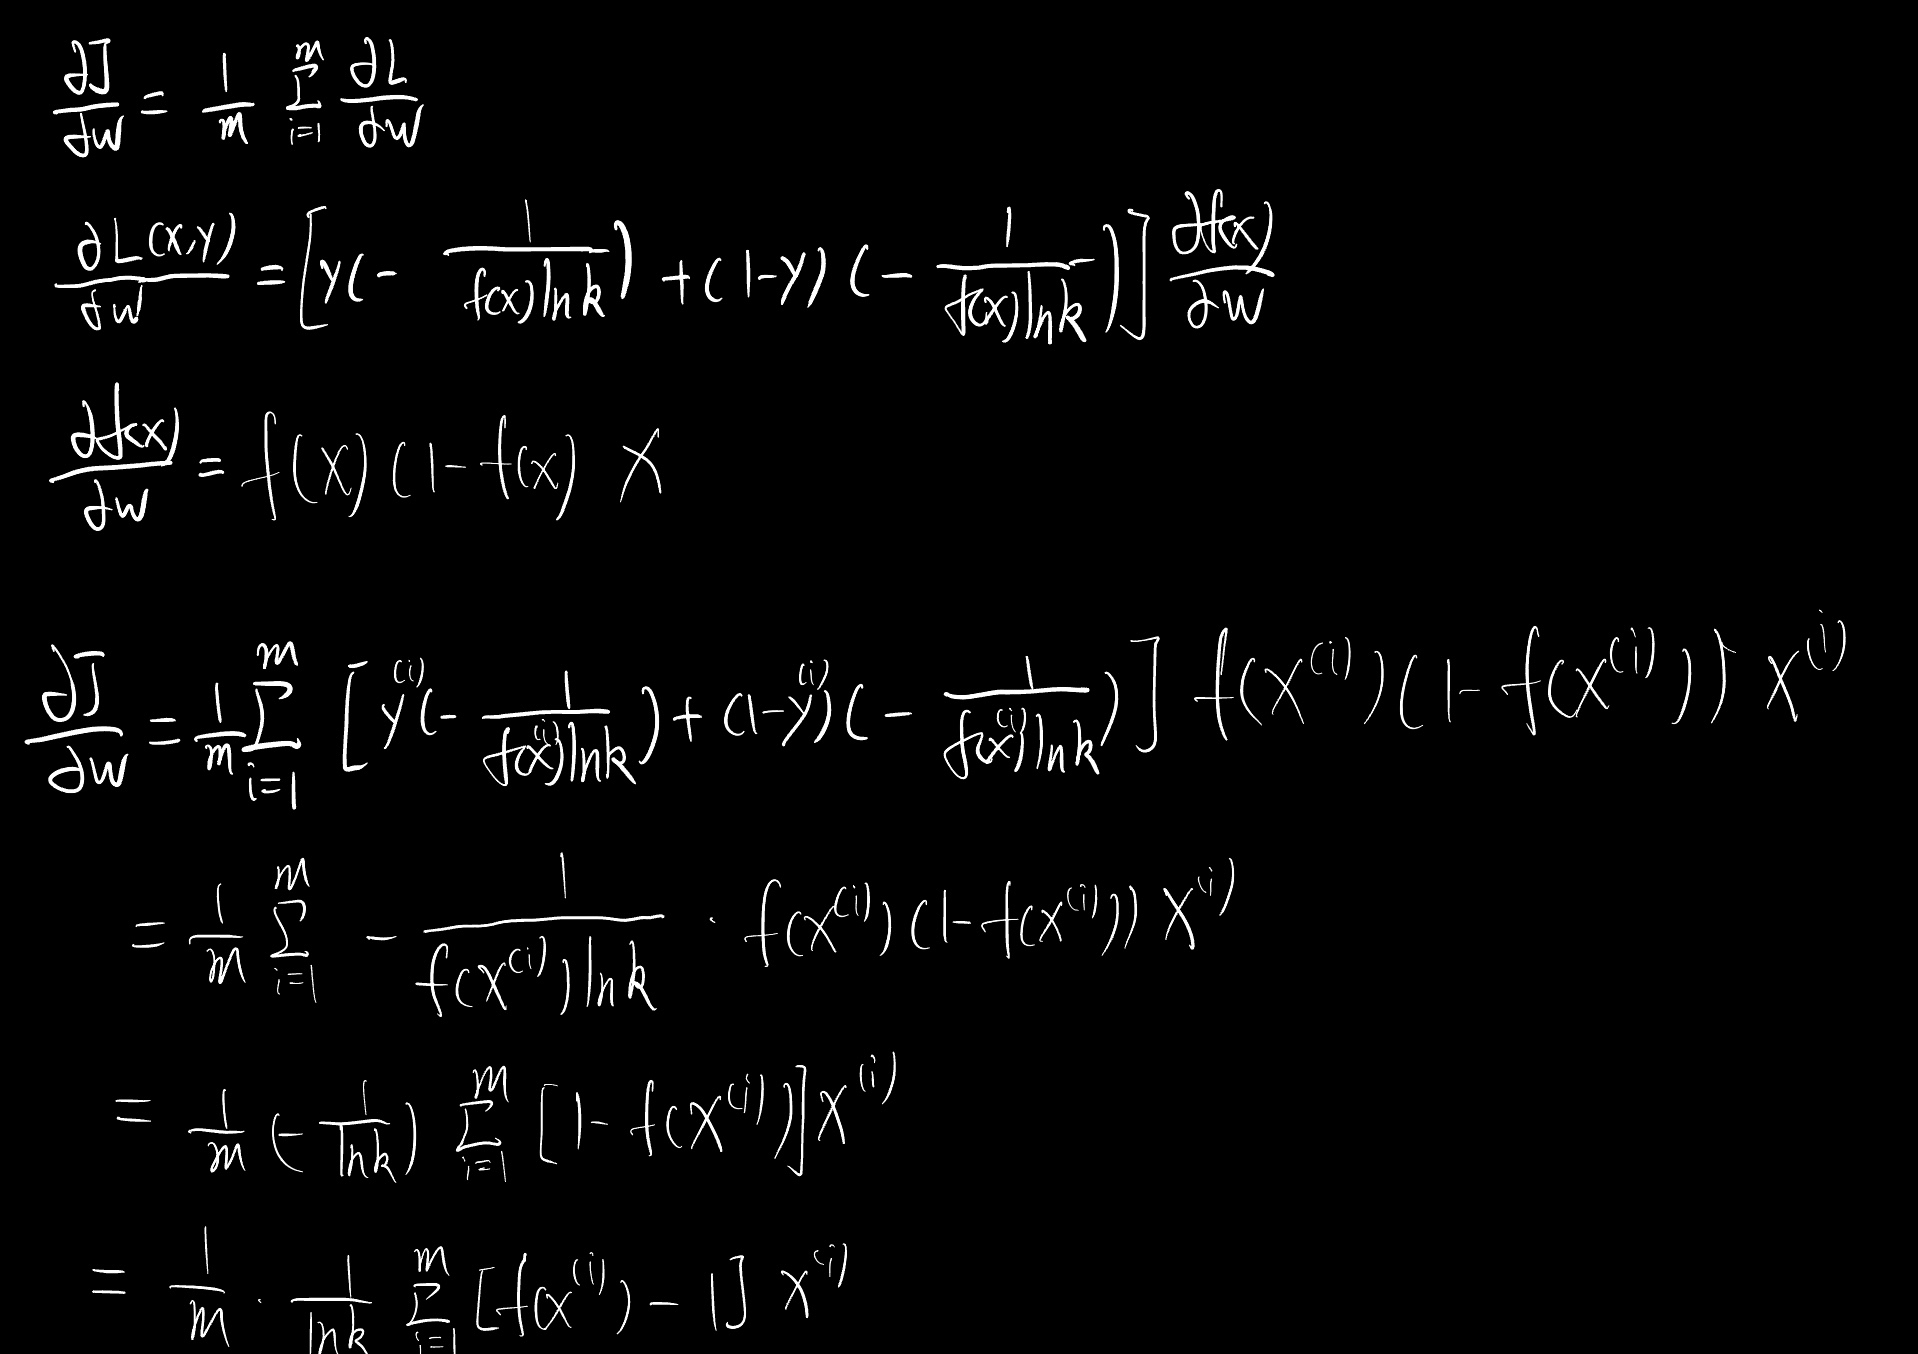 ∂J/∂w = 1/m Σ_{i=1}^{m} ∂L/∂w
∂L(x,y)/∂w = [y(- 1/(f(x)lnk)) + (1-y)(- 1/(f(x)lnk))] ∂f(x)/∂w
∂f(x)/∂w = f(x)(1-f(x) x
∂J/∂w = 1/m Σ_{i=1}^{m} [y^{(i)}(- 1/(f(x^{(i)})lnk)) + (1-y^{(i)})(- 1/(f(x^{(i)})lnk))] f(x^{(i)})(1-f(x^{(i)})) x^{(i)}
= 1/m Σ_{i=1}^{m} - 1/(f(x^{(i)})lnk) · f(x^{(i)})(1-f(x^{(i)})) x^{(i)}
= 1/m (- 1/lnk) Σ_{i=1}^{m} [1-f(x^{(i)})]x^{(i)}
= 1/m · 1/lnk Σ_{i=1}^{m} [f(x^{(i)})-1] x^{(i)}